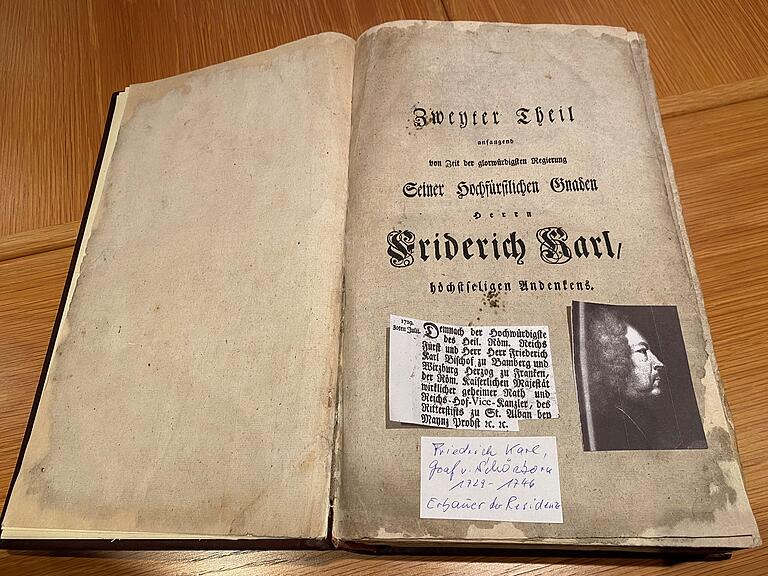 Zweyter Theil
anfangend
von Zeit der glorwürdigsten Regierung
Seiner Hochfürstlichen Gnaden
Herrn
Friderich Karl,
höchstseligen Andenkens.
1729.
30ten Julii.
Demnach der Hochwürdigste
des Heil. Röm. Reichs
Fürst und Herr Herr Friederich
Karl Bischof zu Bamberg und
Wirzburg Herzog zu Franken,
der Röm. Kaiserlichen Majestät
wirklicher geheimer Rath und
Reichs-Hof-Vice-Kanzler, des
Ritterstifts zu St. Alban bey
Maynz Probst ꝛc. ꝛc.
Friedrich Karl,
Graf v. Schönborn
1729 - 1746
Erbauer der Residenz